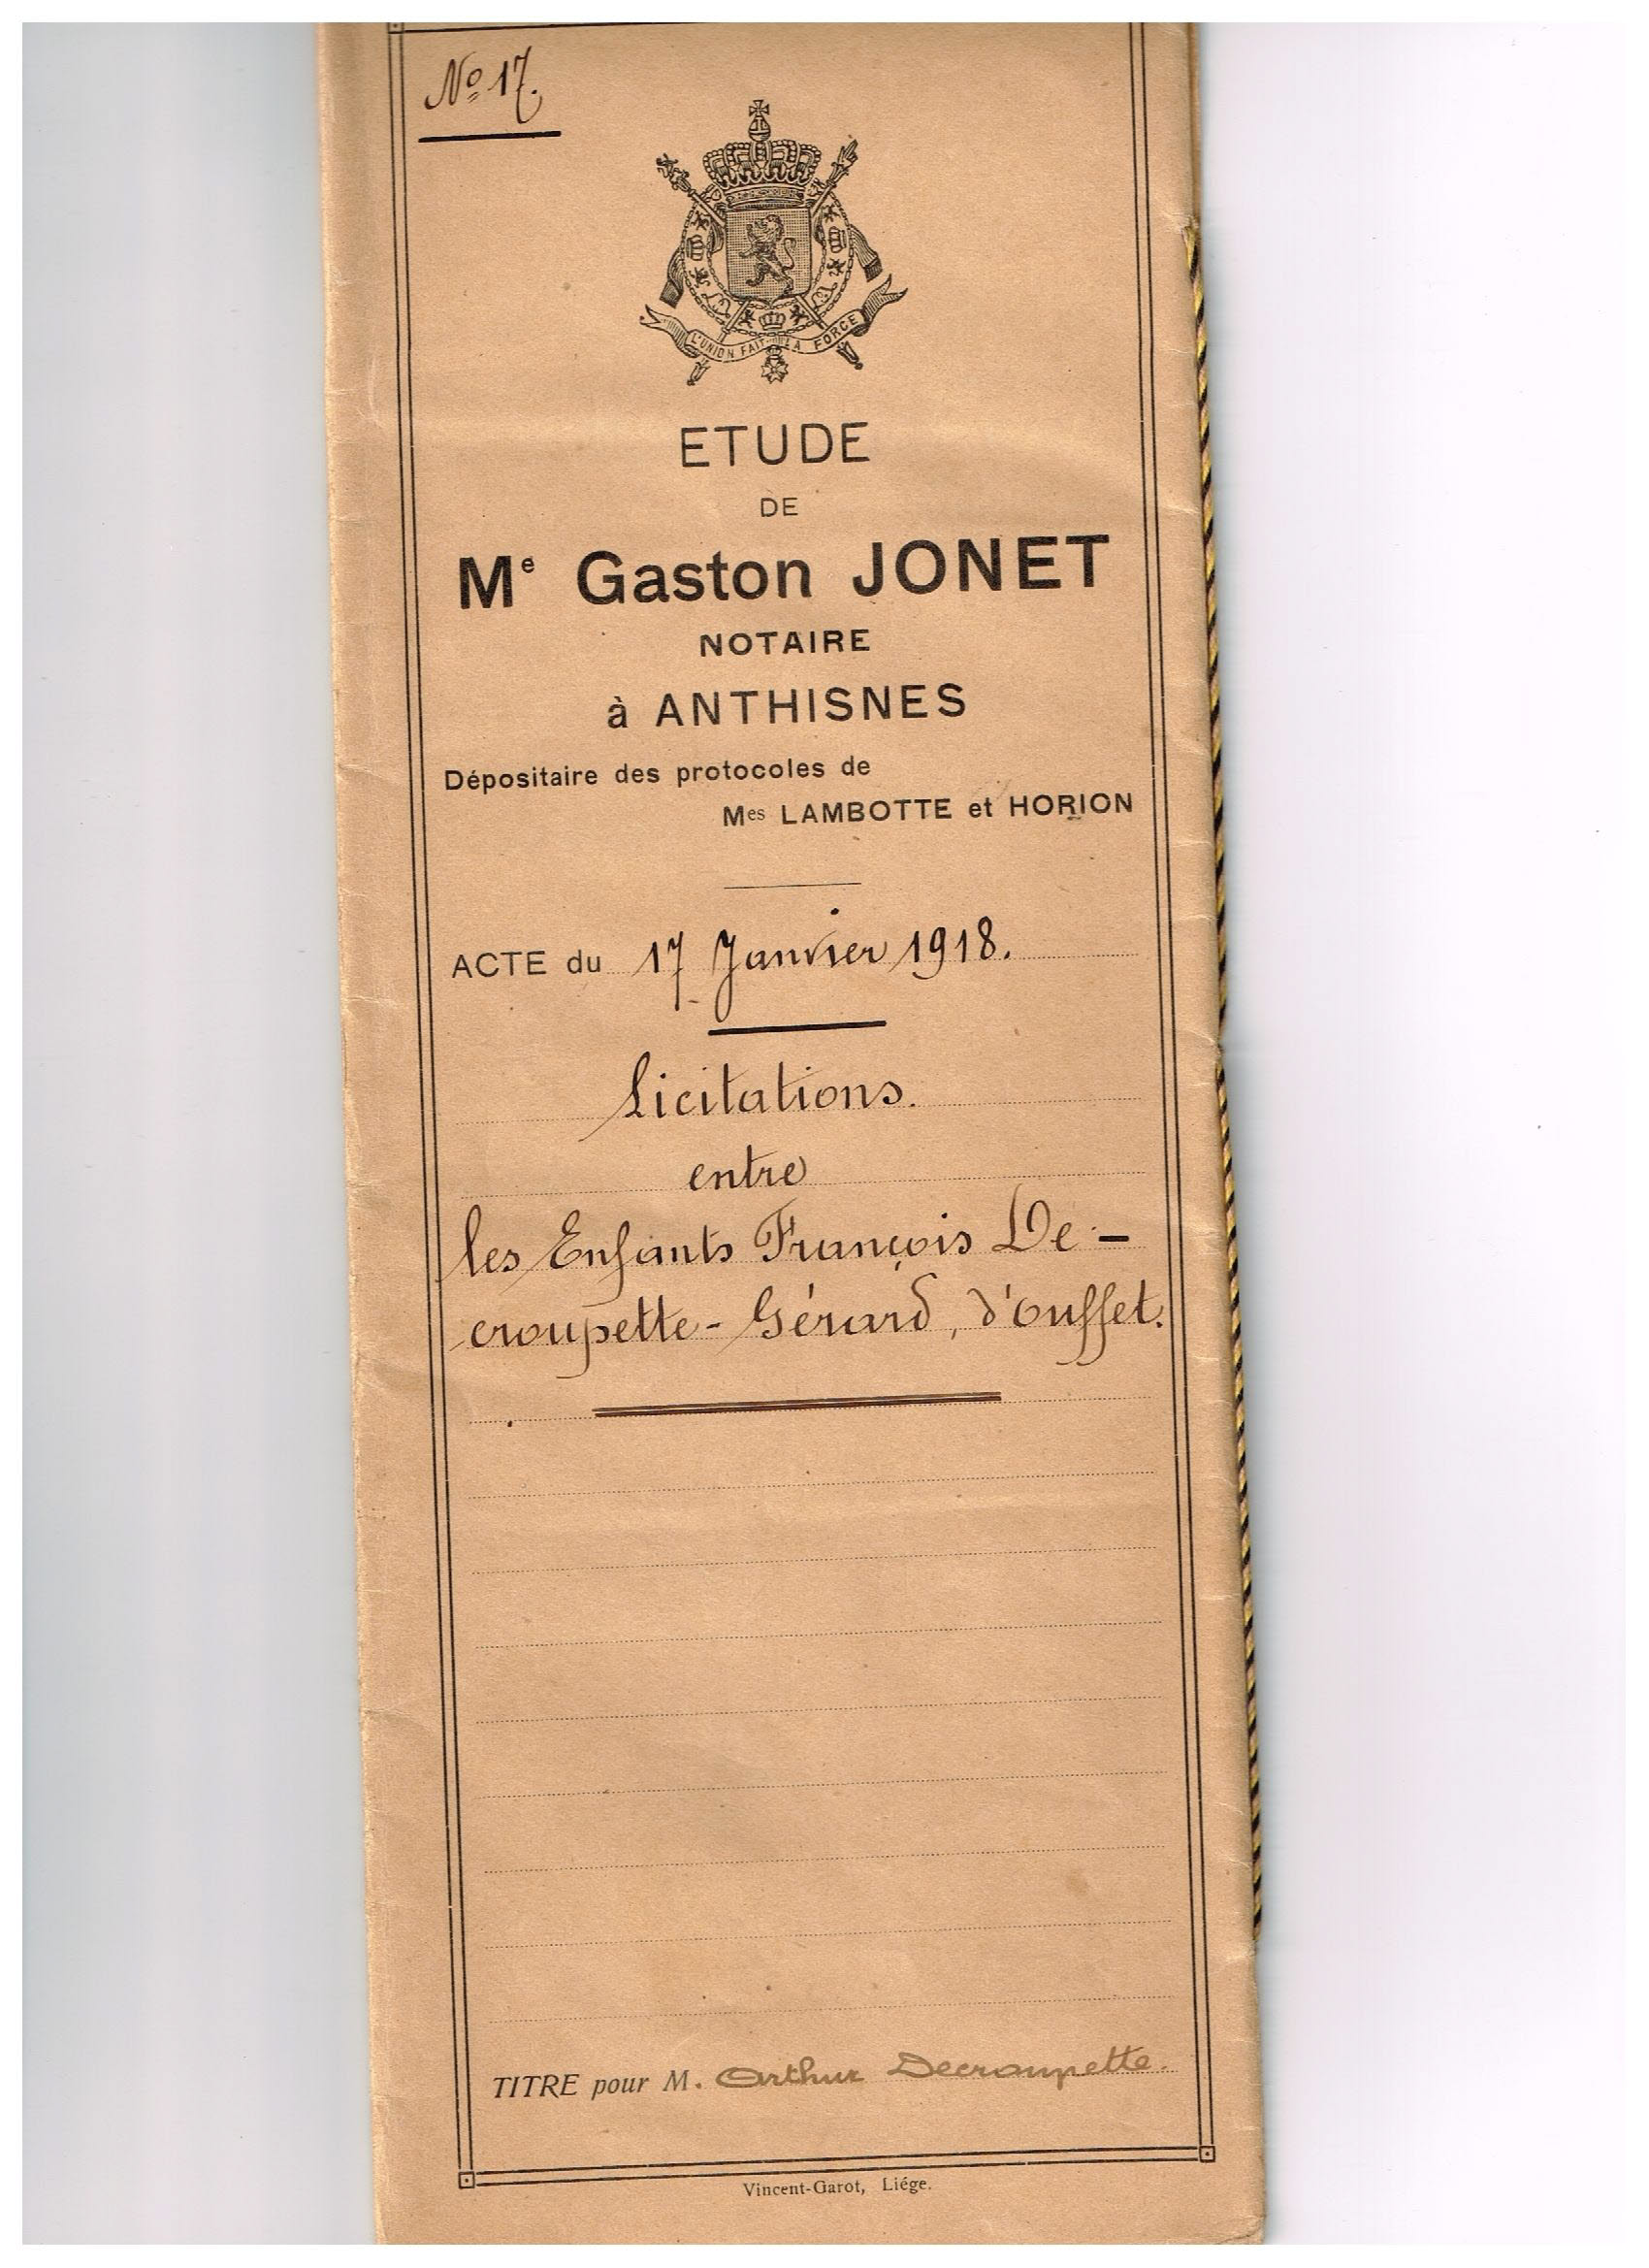 Nº 17.
L'UNION FAIT LA FORCE
ETUDE
DE
Me Gaston JONET
NOTAIRE
à ANTHISNES
Dépositaire des protocoles de
Mes LAMBOTTE et HORION
ACTE du 17 Janvier 1918.
Licitations.
entre
les Enfants François De-
croupette-Gérard, d'Ouffet.
TITRE pour M. Arthur Decroupette.
Vincent-Garot, Liége.